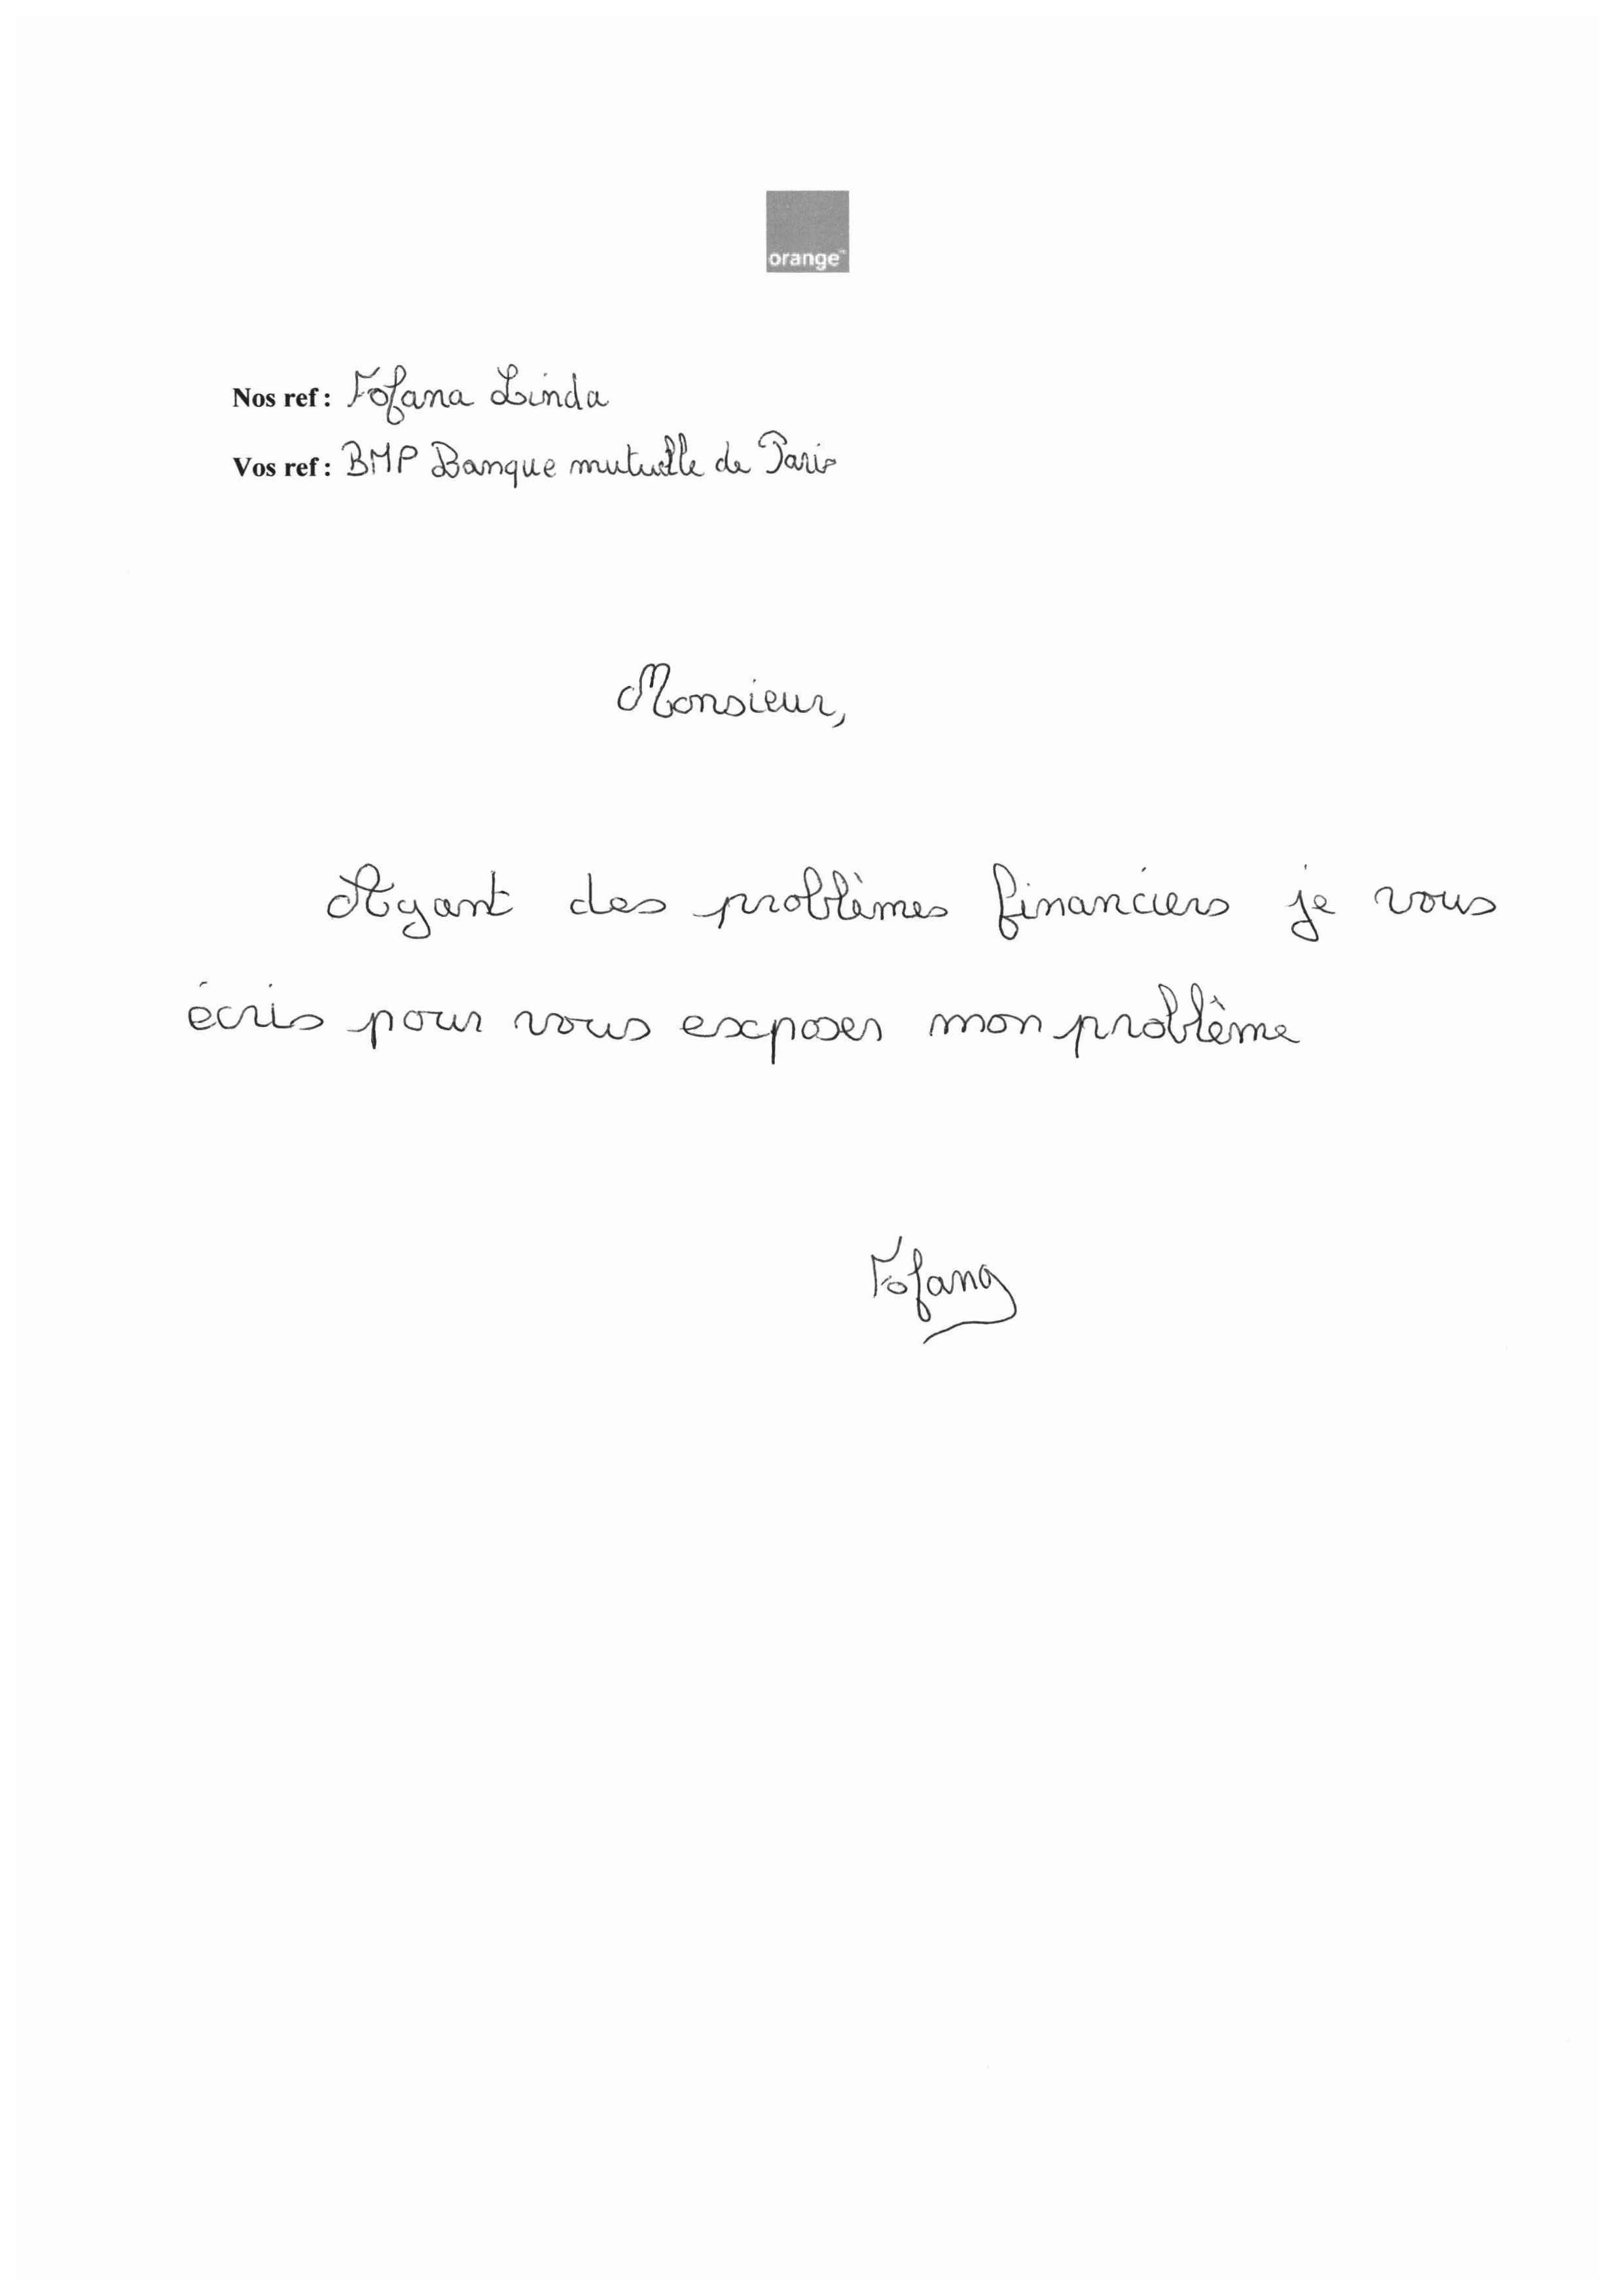 orange™
Nos ref : Fofana Linda
Vos ref : BMP Banque mutuelle de Paris
Monsieur,
Ayant des problèmes financiers je vous
écris pour vous exposer mon problème
Fofana